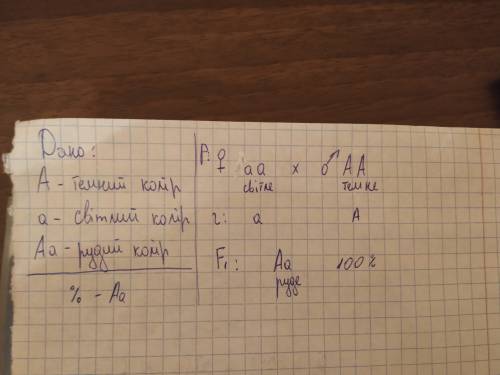 Дано:
А - темний колір
а - світлий колір
Аа - рудий колір
% - Аа
P: ♀ аа x ♂ АА
світле темне
г: а А
F₁: Аа 100%
руде